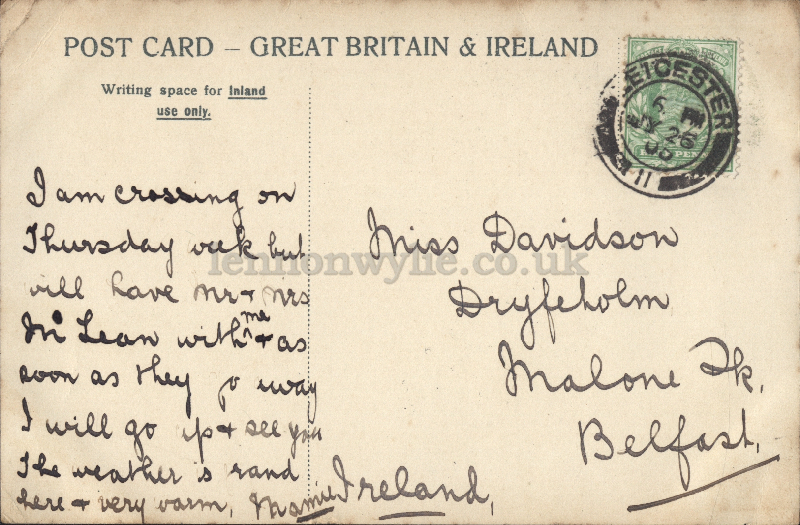 POST CARD – GREAT BRITAIN & IRELAND
Writing space for Inland
use only.
LEICESTER
6 PM
26
11
I am crossing on
Thursday week but
will have Mr & Mrs
Mc Lean with me & as
soon as they go away
I will go up & see you
The weather is grand
here & very warm, Mamie
Miss Davidson
Dryfeholm
Malone Pk,
Belfast,
Ireland,
lennonwylie.co.uk